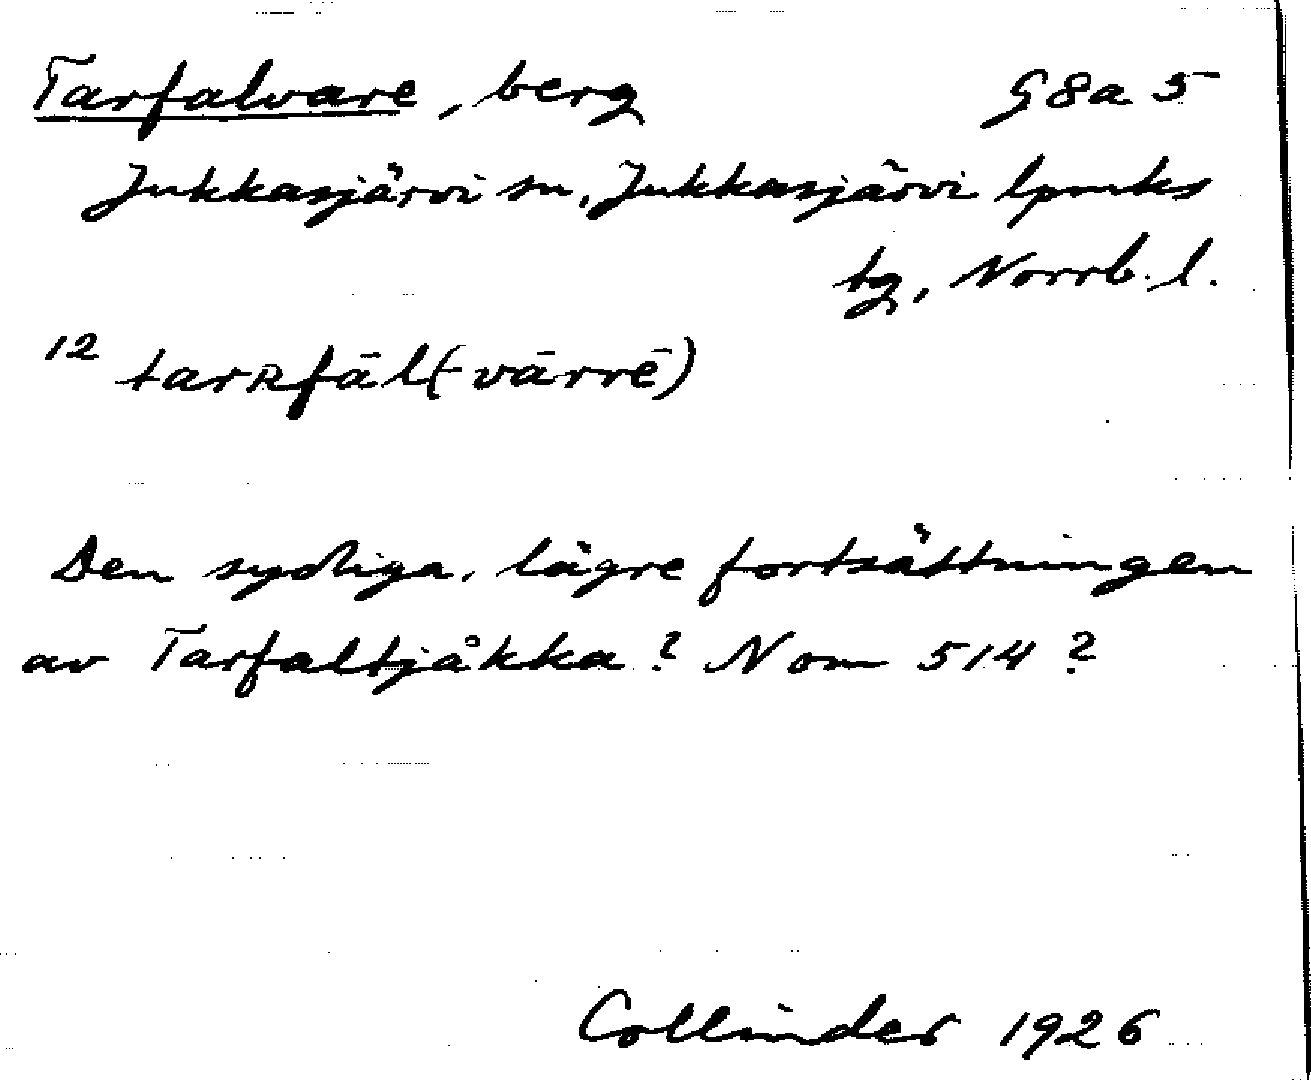 Tarfalvare, berg G8a 5
Jukkasjärvi sn, Jukkasjärvi lpmks
tg, Norrb. l.
12 tarʀfāl(-vārrē)
Den sydliga, lägre fortsättningen
av Tarfaltjåkka? Nom 514?
Collinder 1926